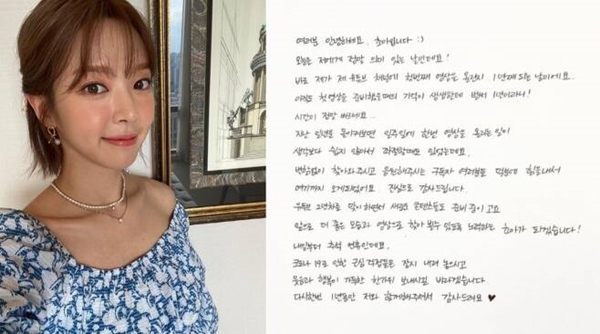 여러분 안녕하세요. 초아입니다 :)
오늘은 제게 정말 의미 있는 날인데요!
바로 제가 제 유튜브 채널에 첫번째 영상을 올린지 1년째 되는 날이에요.
아직도 첫 영상을 준비했을때의 기억이 생생한데 벌써 1년이라니!
시간이 정말 빠르네요..
지난 일년을 돌이켜보면 일주일에 한번 영상을 올리는 일이
생각보다 쉽지 않아서 좌절할때도 있었는데요.
변함없이 찾아와주시고 응원해주시는 구독자 여러분들 덕분에 힘을내서
여기까지 오게되었어요. 진심으로 감사드립니다.
유튜브 2년차를 맞이하면서 새로운 콘텐츠들도 준비 중이고요
앞으로 더 좋은 모습과 영상으로 찾아 뵐수 있도록 노력하는 초아가 되겠습니다!
내일부터 추석 연휴인데요.
코로나 19로 인한 근심 걱정들은 잠시 내려 놓으시고
웃음과 행복이 가득한 한가위 보내시길 바라겠습니다
다시한번 1년동안 저와 함께해주셔서 감사드려요 ♥